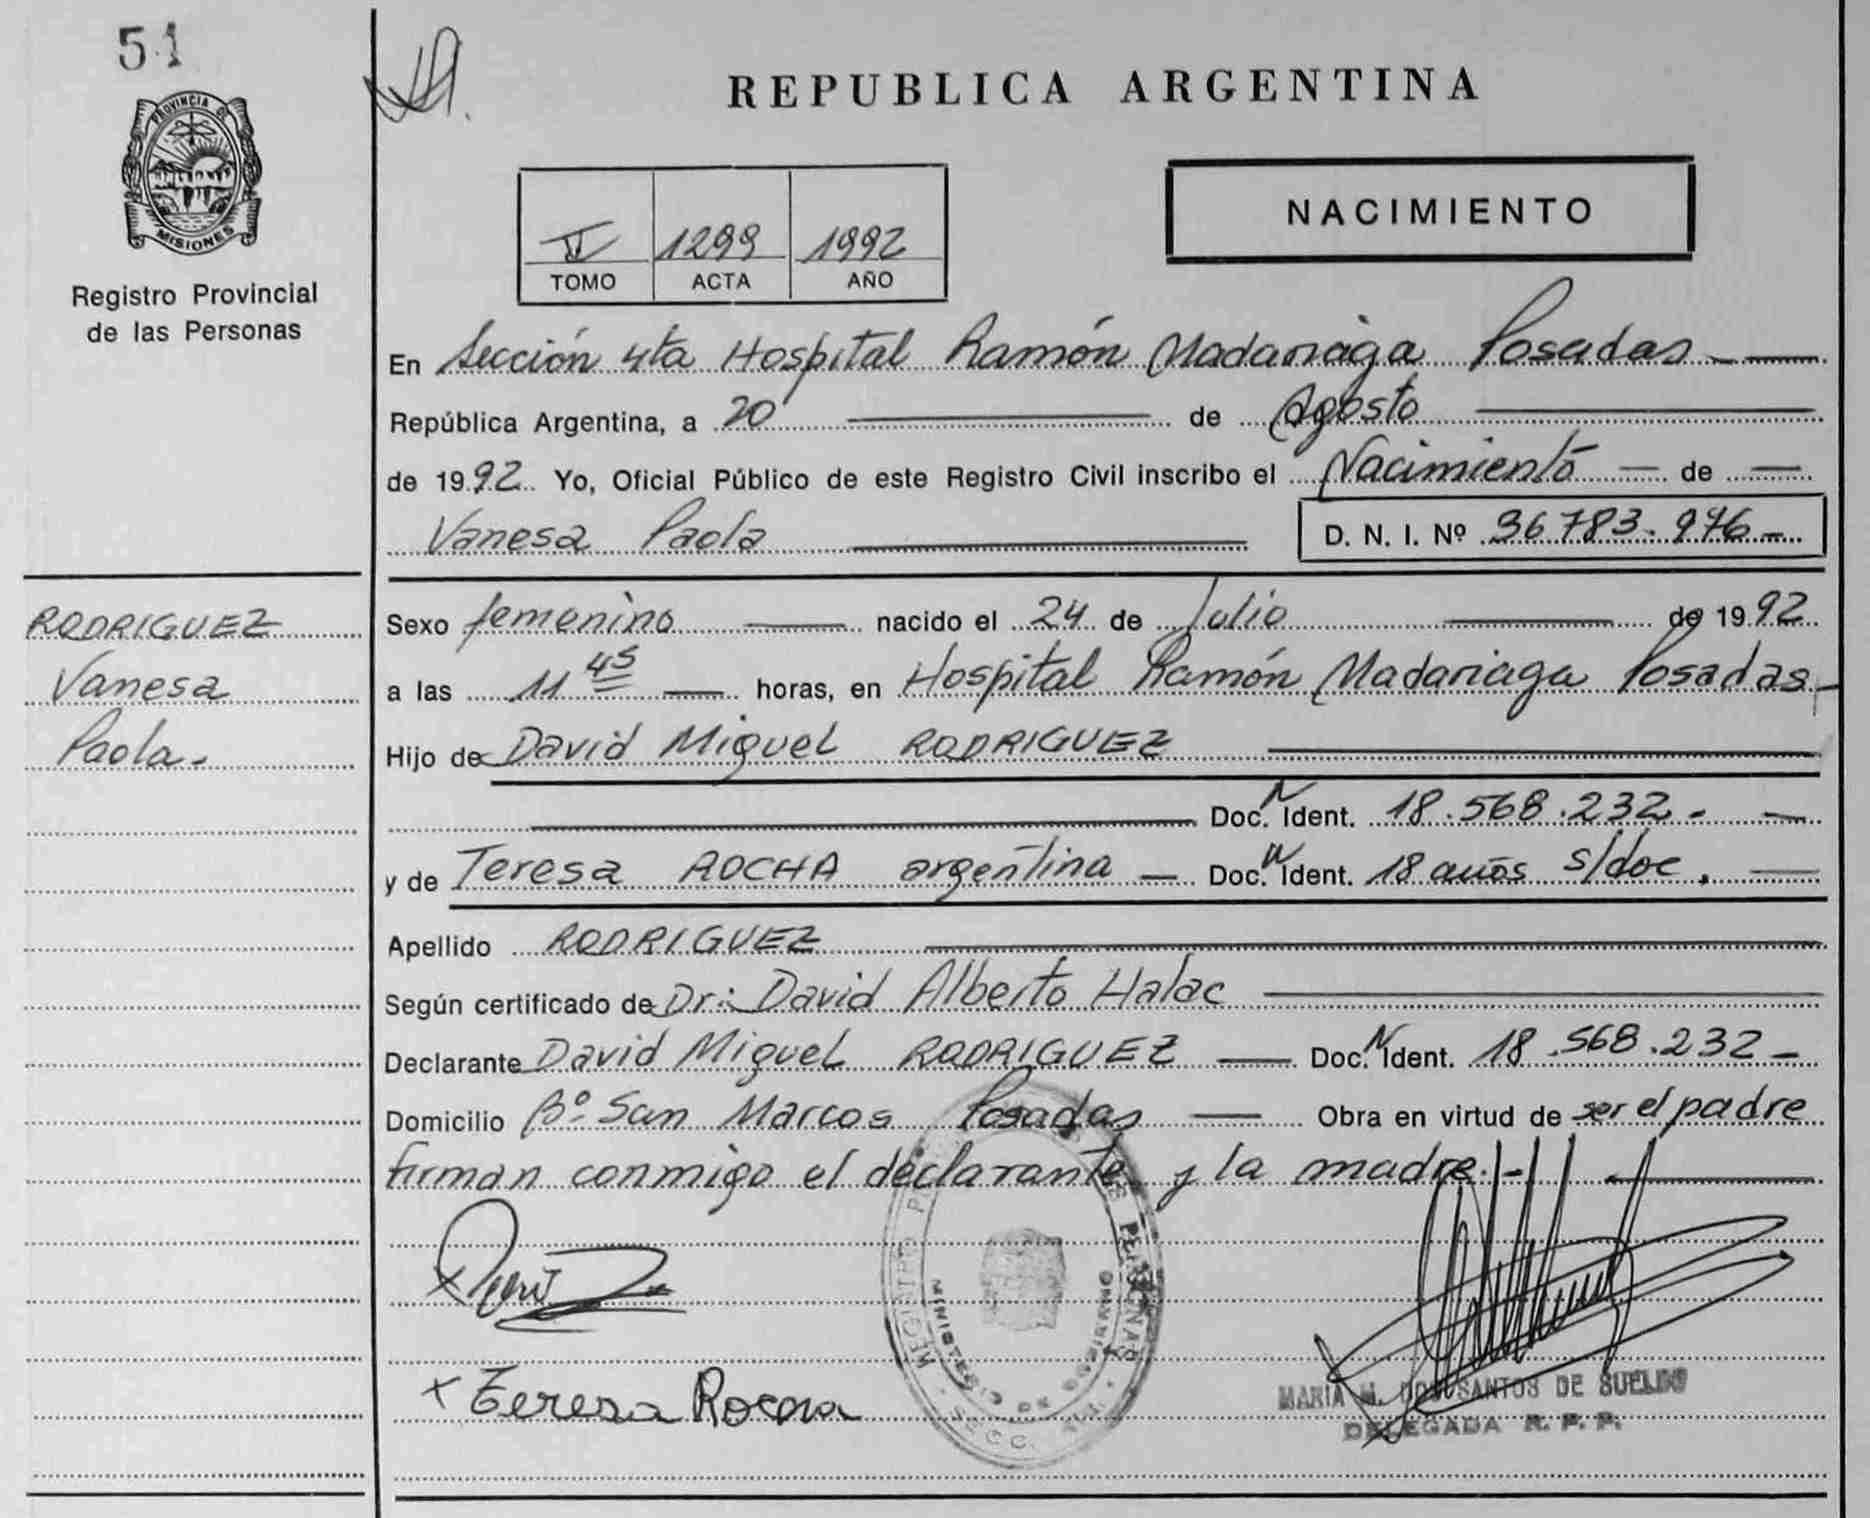 51
PROVINCIA DE
MISIONES
Registro Provincial
de las Personas
REPUBLICA ARGENTINA
NACIMIENTO
1299 1992
TOMO ACTA AÑO
En Sección 4ta Hospital Ramón Madariaga Posadas
República Argentina, a 20 de Agosto
de 1992 Yo, Oficial Público de este Registro Civil inscribo el Nacimiento de
Vanesa Paola D. N. I. Nº 36783.976-
RODRIGUEZ
Vanesa
Paola.
Sexo femenino nacido el 24 de Julio de 1992
a las 11 45 horas, en Hospital Ramón Madariaga Posadas
Hijo de David Miguel RODRIGUEZ
Doc. N Ident. 18.568.232.
y de Teresa ROCHA argentina Doc. N Ident. 18 años s/doc.
Apellido RODRIGUEZ
Según certificado de Dr: David Alberto Halac
Declarante David Miguel RODRIGUEZ Doc. N Ident. 18.568.232
Domicilio Bº San Marcos Posadas Obra en virtud de ser el padre
firman conmigo el declarante y la madre.-
x Teresa Rocha
MINISTERIO DE GOBIERNO
MARIA M. DOS SANTOS DE SUELDO
DELEGADA R. P. P.